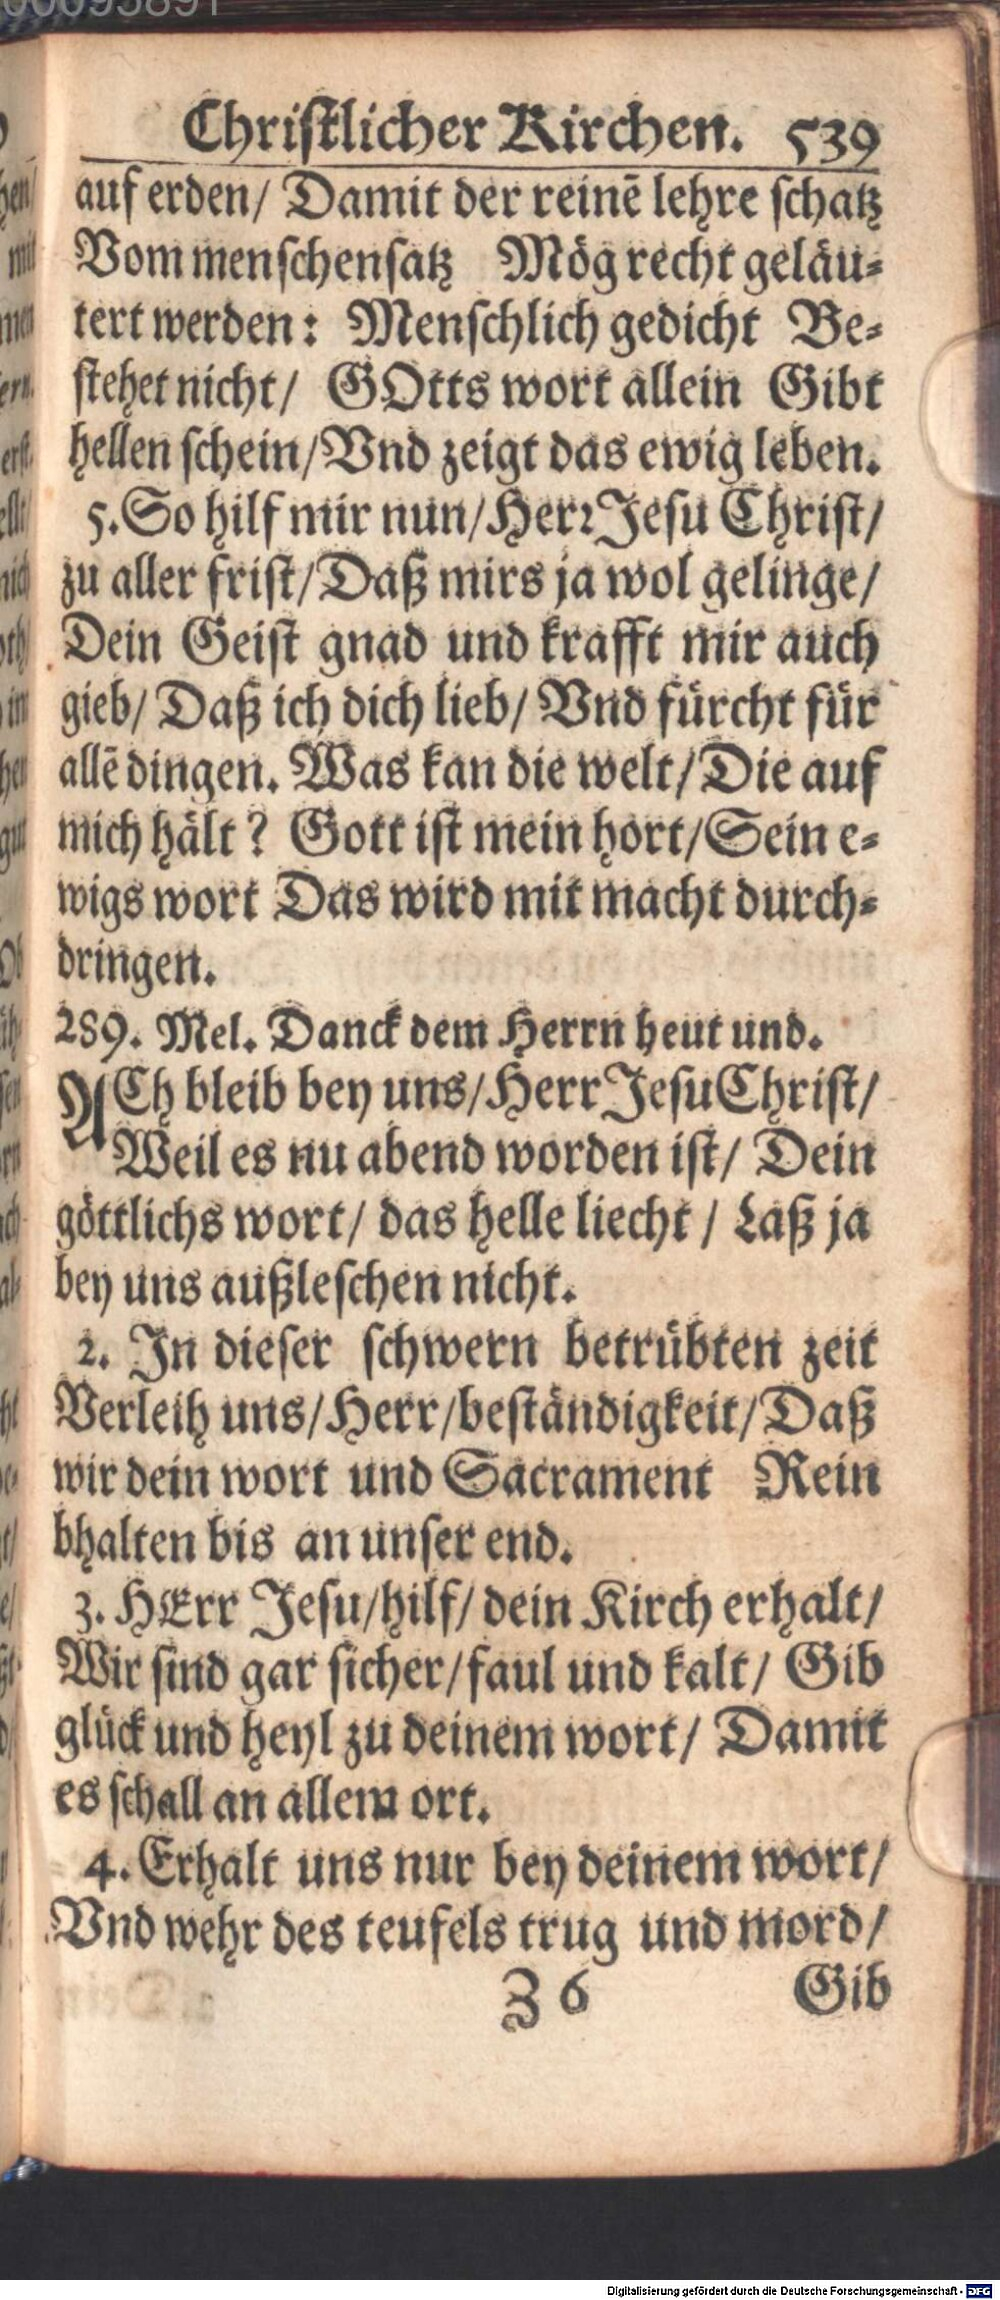 Christlicher Kirchen. 539
auf erden/ Damit der reinē lehre schatz
Vom menschensatz Mög recht geläu-
tert werden: Menschlich gedicht Be-
stehet nicht/ GOtts wort allein Gibt
hellen schein/Vnd zeigt das ewig leben.
5. So hilf mir nun/Herr Jesu Christ/
zu aller frist/Daß mirs ja wol gelinge/
Dein Geist gnad und krafft mir auch
gieb/ Daß ich dich lieb/ Vnd fürcht für
allē dingen. Was kan die welt/Die auf
mich hält? Gott ist mein hort/Sein e-
wigs wort Das wird mit macht durch-
dringen.
289. Mel. Danck dem Herrn heut und.
ACh bleib bey uns/Herr Jesu Christ/
Weil es nu abend worden ist/ Dein
göttlichs wort/ das helle liecht/ Laß ja
bey uns außleschen nicht.
2. In dieser schwern betrübten zeit
Verleih uns/Herr/beständigkeit/Daß
wir dein wort und Sacrament Rein
bhalten bis an unser end.
3. HErr Jesu/hilf/ dein Kirch erhalt/
Wir sind gar sicher/faul und kalt/ Gib
glück und heyl zu deinem wort/ Damit
es schall an allem ort.
4. Erhalt uns nur bey deinem wort/
Vnd wehr des teufels trug und mord/
Z 6 Gib
Digitalisierung gefördert durch die Deutsche Forschungsgemeinschaft - DFG